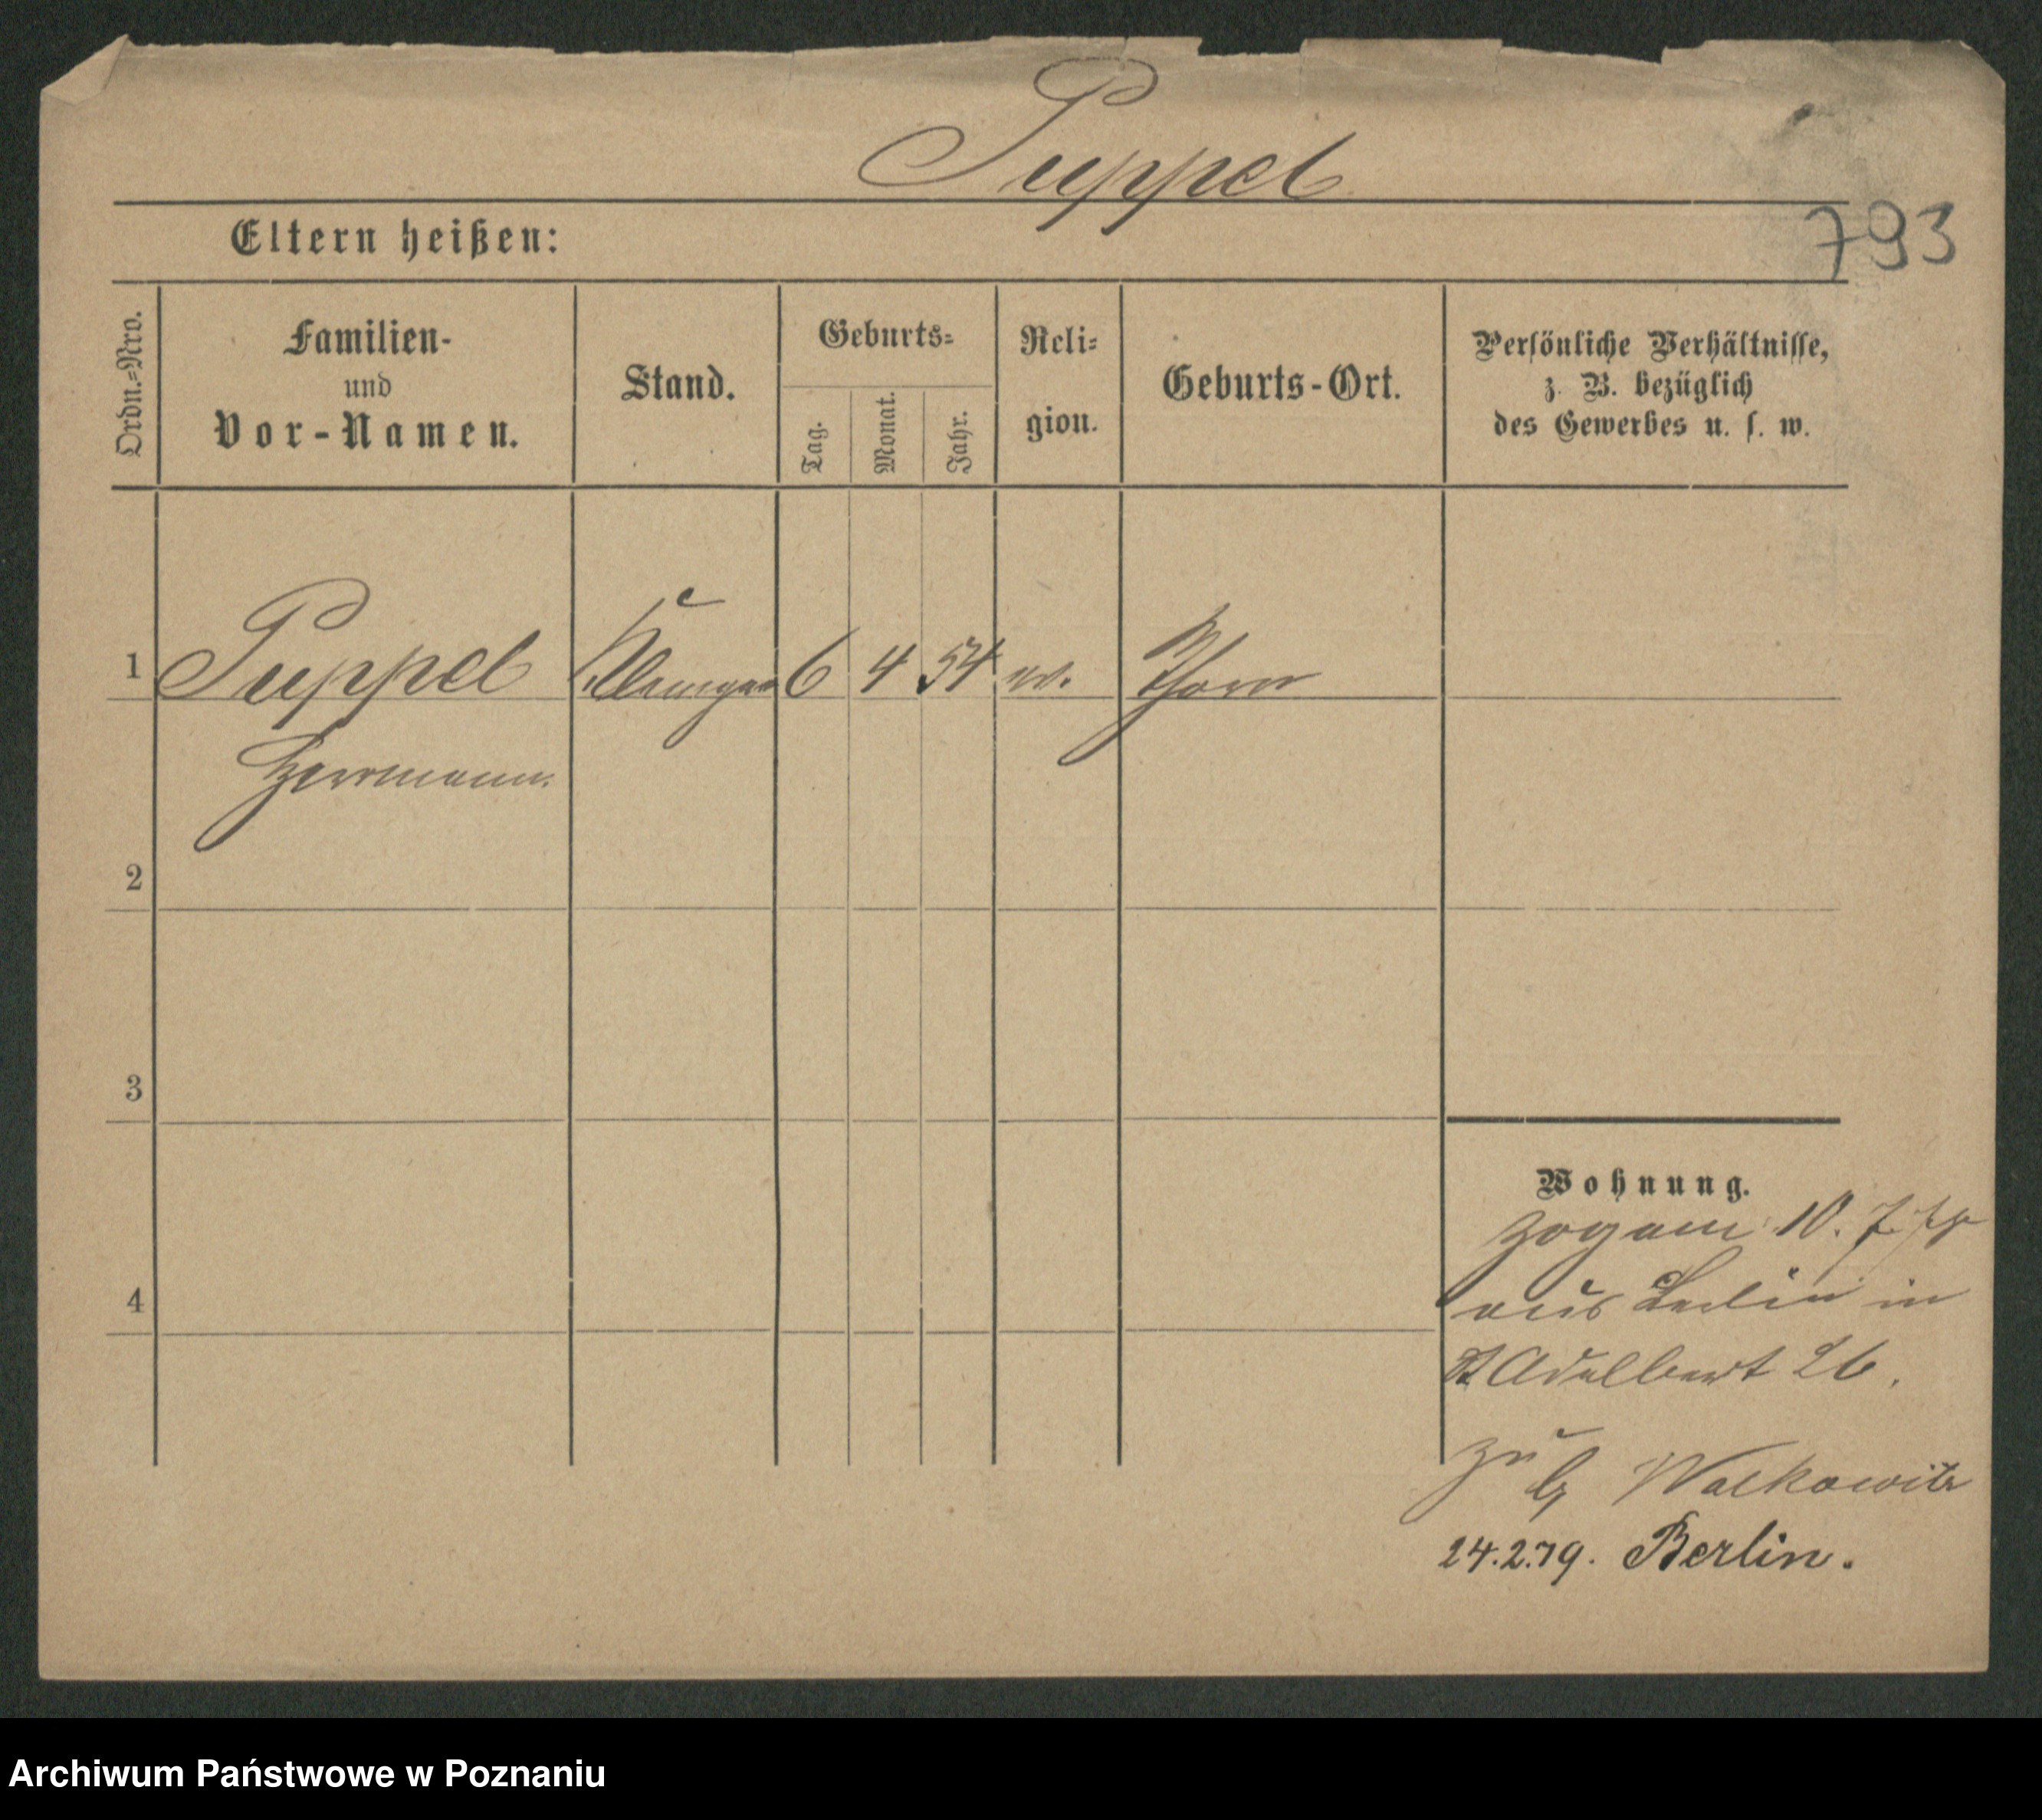 Puppel
793
Eltern heißen:
Ordn.=Nro.
Familien-
und
Vor-Namen.
Stand.
Geburts=
Tag.
Monat.
Jahr.
Reli=
gion.
Geburts-Ort.
Persönliche Verhältnisse,
z. B. bezüglich
des Gewerbes u. s. w.
1 Puppel 6 4 54 Thorn
Herrmann.
2
3
4
Wohnung.
zog am 10. 7.
aus Berlin in
St Adalbert 26.
zu Walkowitz
24.2.79. Berlin.
Archiwum Państwowe w Poznaniu